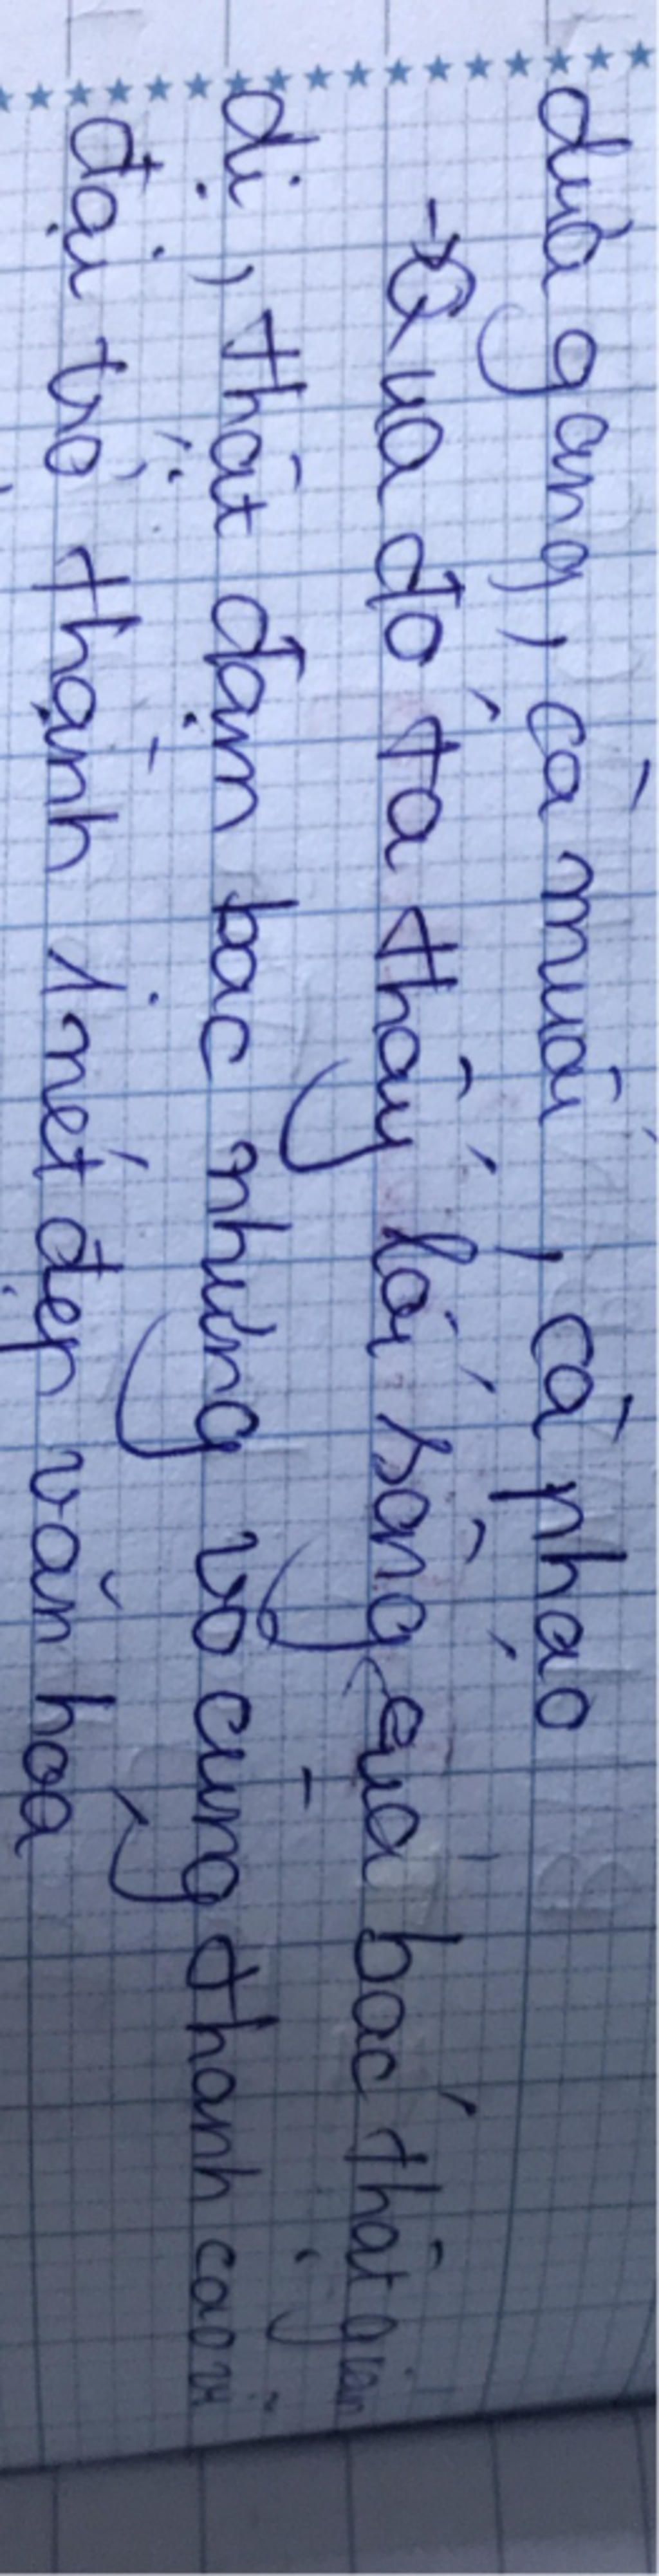 dưa gang, cà muối, cà pháo
→ Qua đó ta thấy lối sống của bác thật giản
dị, thật đạm bạc nhưng vô cùng thanh cao vĩ
đại trở thành 1 nét đẹp văn hoa